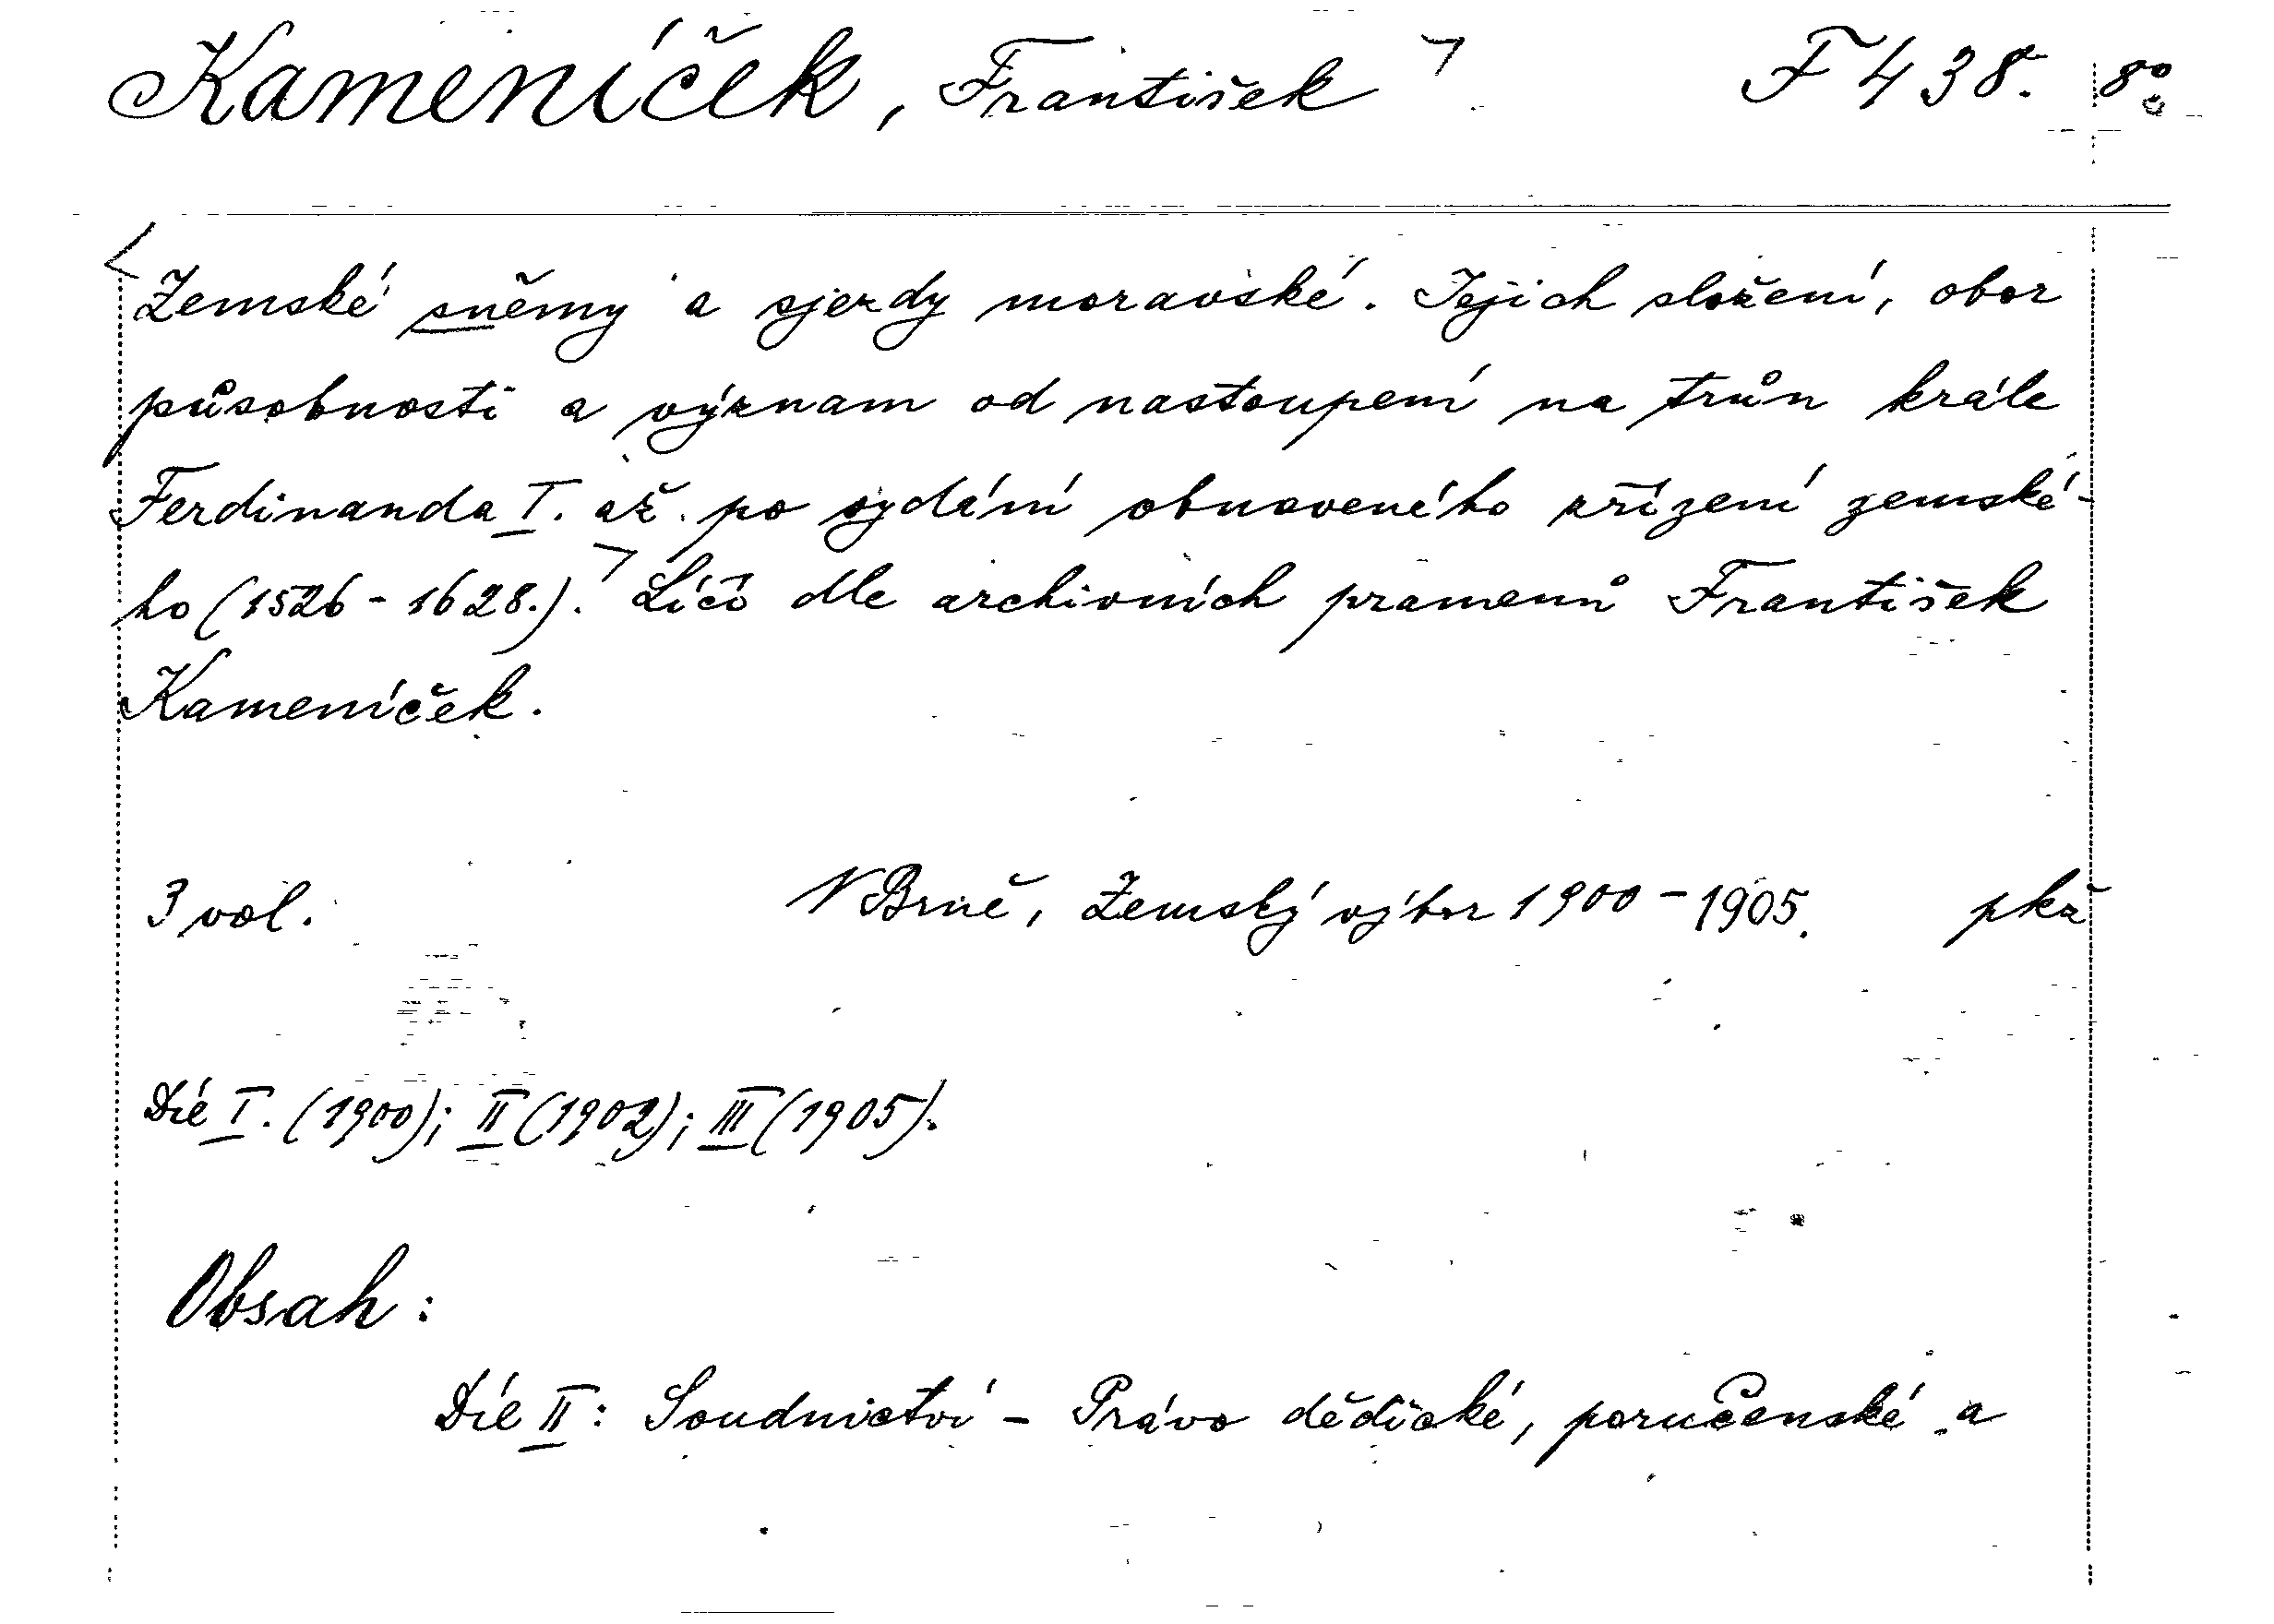 Kameníček, František F 438. 8°
Zemské sněmy a sjezdy moravské. Jejich složení, obor
působnosti a význam od nastoupení na trůn krále
Ferdinanda I. až po vydání obnoveného zřízení zemské-
ho (1526 - 1628.). Líčí dle archivních pramenů František
Kameníček.
3 vol. V Brně, Zemský výbor 1900 - 1905. pkž
Díl I. (1900); II (1902); III (1905).
Obsah:
Díl II: Soudnictví - Právo dědické, poručenské a